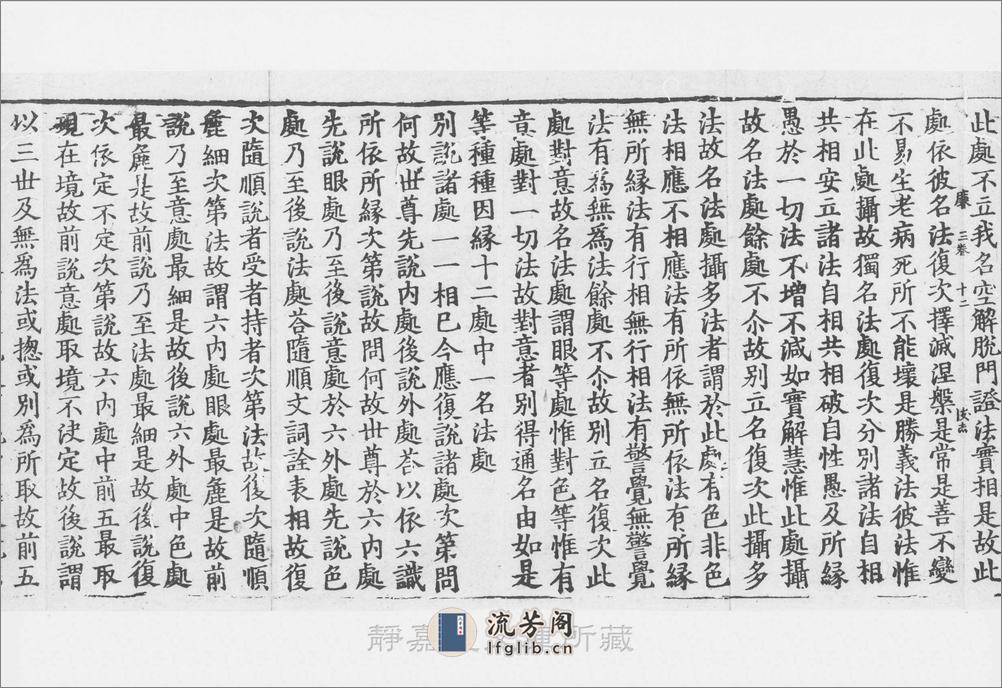 此處不立我名空解脫門證法實相是故此
三卷 十二
處依彼名法復次擇滅涅槃是常是善不變
不易生老病死所不能壞是勝義法彼法惟
在此處攝故獨名法處復次分別諸法自相
共相安立諸法自相共相破自性愚及所緣
愚於一切法不增不減如實解慧惟此處攝
故名法處餘處不尒故别立名復次此攝多
法故名法處攝多法者謂於此處有色非色
法相應不相應法有所依無所依法有所緣
無所緣法有行相無行相法有警覺無警覺
法有爲無爲法餘處不尒故別立名復次此
處對意故名法處謂眼等處惟對色等惟有
意處對一切法故對意者别得通名由如是
等種種因緣十二處中一名法處
別說諸處一一相已今應復說諸處次第問
何故丗尊先說内處後說外處荅以依六識
所依所緣次第說故問何故丗尊於六内處
先說眼處乃至後說意處於六外處先說色
處乃至後說法處荅隨順文詞詮表相故復
次隨順說者受者持者次第法故復次隨順
麁細次第法故謂六内處眼處最麁是故前
說乃至意處最細是故後說六外處中色處
最麁是故前說乃至法處最細是故後說復
次依定不定次第說故六内處中前五最取
現在境故前說意處取境不決定故後說謂
似三丗及無爲法或揔或別爲所取故前五
靜嘉堂文庫所藏
流芳阁
lfglib.cn